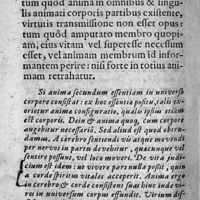 tum quod anima in omnibus & singu-
lis animati corporis partibus existente,
virtutis transmissione non esset opus:
tum quôd amputato membro quopi-
am, eius vitam vel superesse necessum
esset, vel animam membrum id infor-
mantem perire: nisi forte in totius ani-
mam retrahatur.
Si anima secundum essentiam in universo
corpore consistat: ex hoc essentia positu, talis ex-
orietur anima configuratio, qualis ipsius etiam
est corporis. Dein & anima quoq, cum corpore
augebitur necessariò. Sed aliud est quod obrun-
damus. A cerebro sentiendi vis atque movendi
per nervos in partes devehitur, quacunque vel
sentire possunt, vel loco moveri. De vita judi-
cium est idem: ne vivere pars nulla possit, quin
a corde spiritum vitales acceperit. Anima ergo
in cerebro & corde consistens suas hinc inde vi-
res in universum corpus effundit. Virium dis-